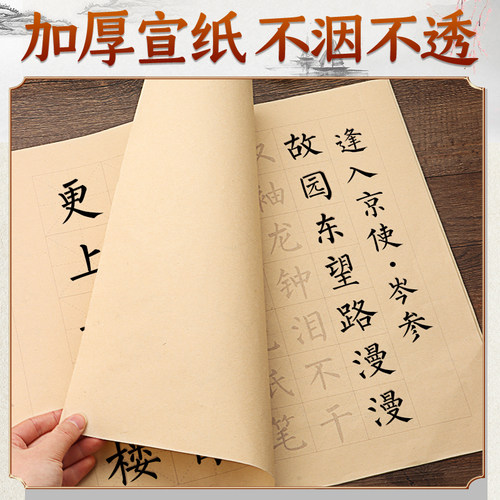 加厚宣纸 不洇不透
逢入京使·岑参
故园东望路漫漫
袖龙钟泪不干
纸笔
更上
楼